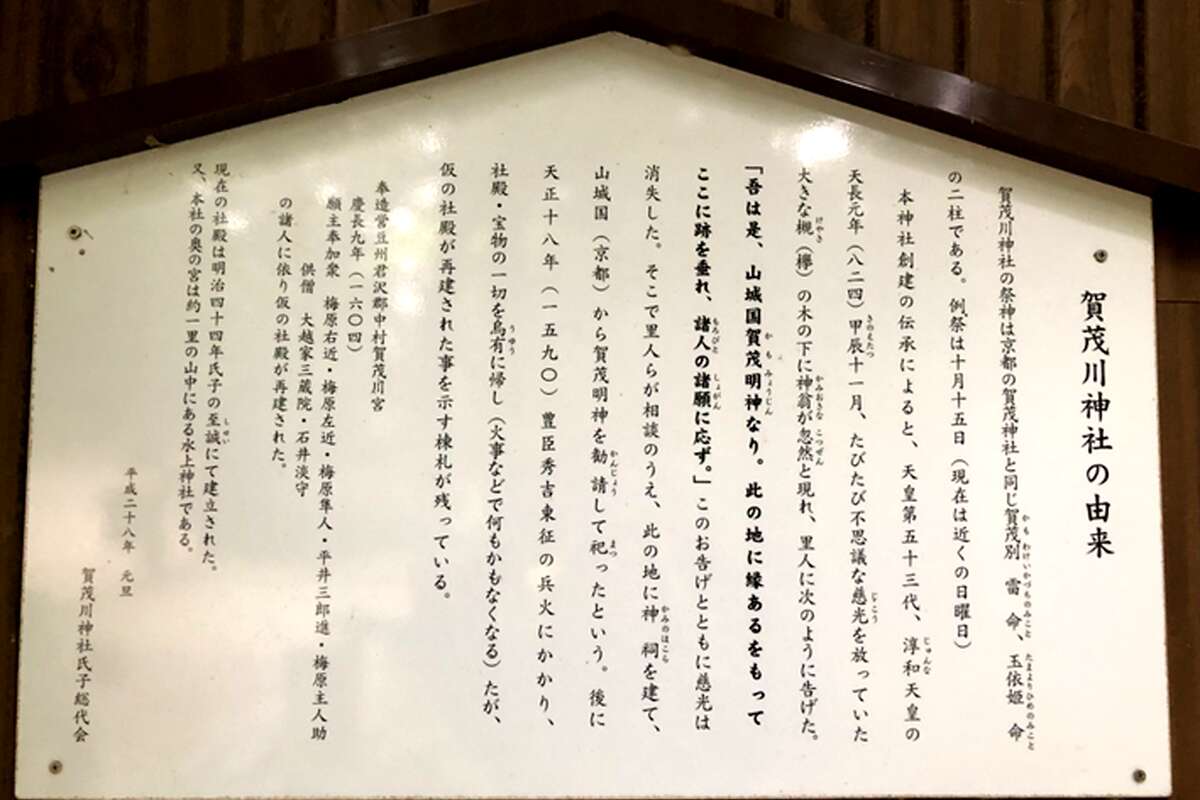 賀茂川神社の由来
賀茂川神社の祭神は京都の賀茂神社と同じ賀茂別雷命、玉依姫命
の二柱である。例祭は十月十五日（現在は近くの日曜日）
本神社創建の伝承によると、天皇第五十三代、淳和天皇の
天長元年（八二四）甲辰十一月、たびたび不思議な慈光を放っていた
大きな槻（欅）の木の下に神翁が忽然と現れ、里人に次のように告げた。
「吾は是、山城国賀茂明神なり。此の地に縁あるをもって
ここに跡を垂れ、諸人の諸願に応ず。」このお告げとともに慈光は
消失した。そこで里人らが相談のうえ、此の地に神祠を建て、
山城国（京都）から賀茂明神を勧請して祀ったという。後に
天正十八年（一五九〇）豊臣秀吉東征の兵火にかかり、
社殿・宝物の一切を烏有に帰し（火事などで何もかもなくなる）たが、
仮の社殿が再建された事を示す棟札が残っている。
奉造営豆州君沢郡中村賀茂川宮
慶長九年（一六〇四）
願主奉加衆　梅原右近・梅原左近・梅原隼人・平井三郎進・梅原主人助
供僧　大越家三蔵院・石井淡守
の諸人に依り仮の社殿が再建された。
現在の社殿は明治四十四年氏子の至誠にて建立された。
又、本社の奥の宮は約一里の山中にある水上神社である。
平成二十八年　元旦
賀茂川神社氏子総代会